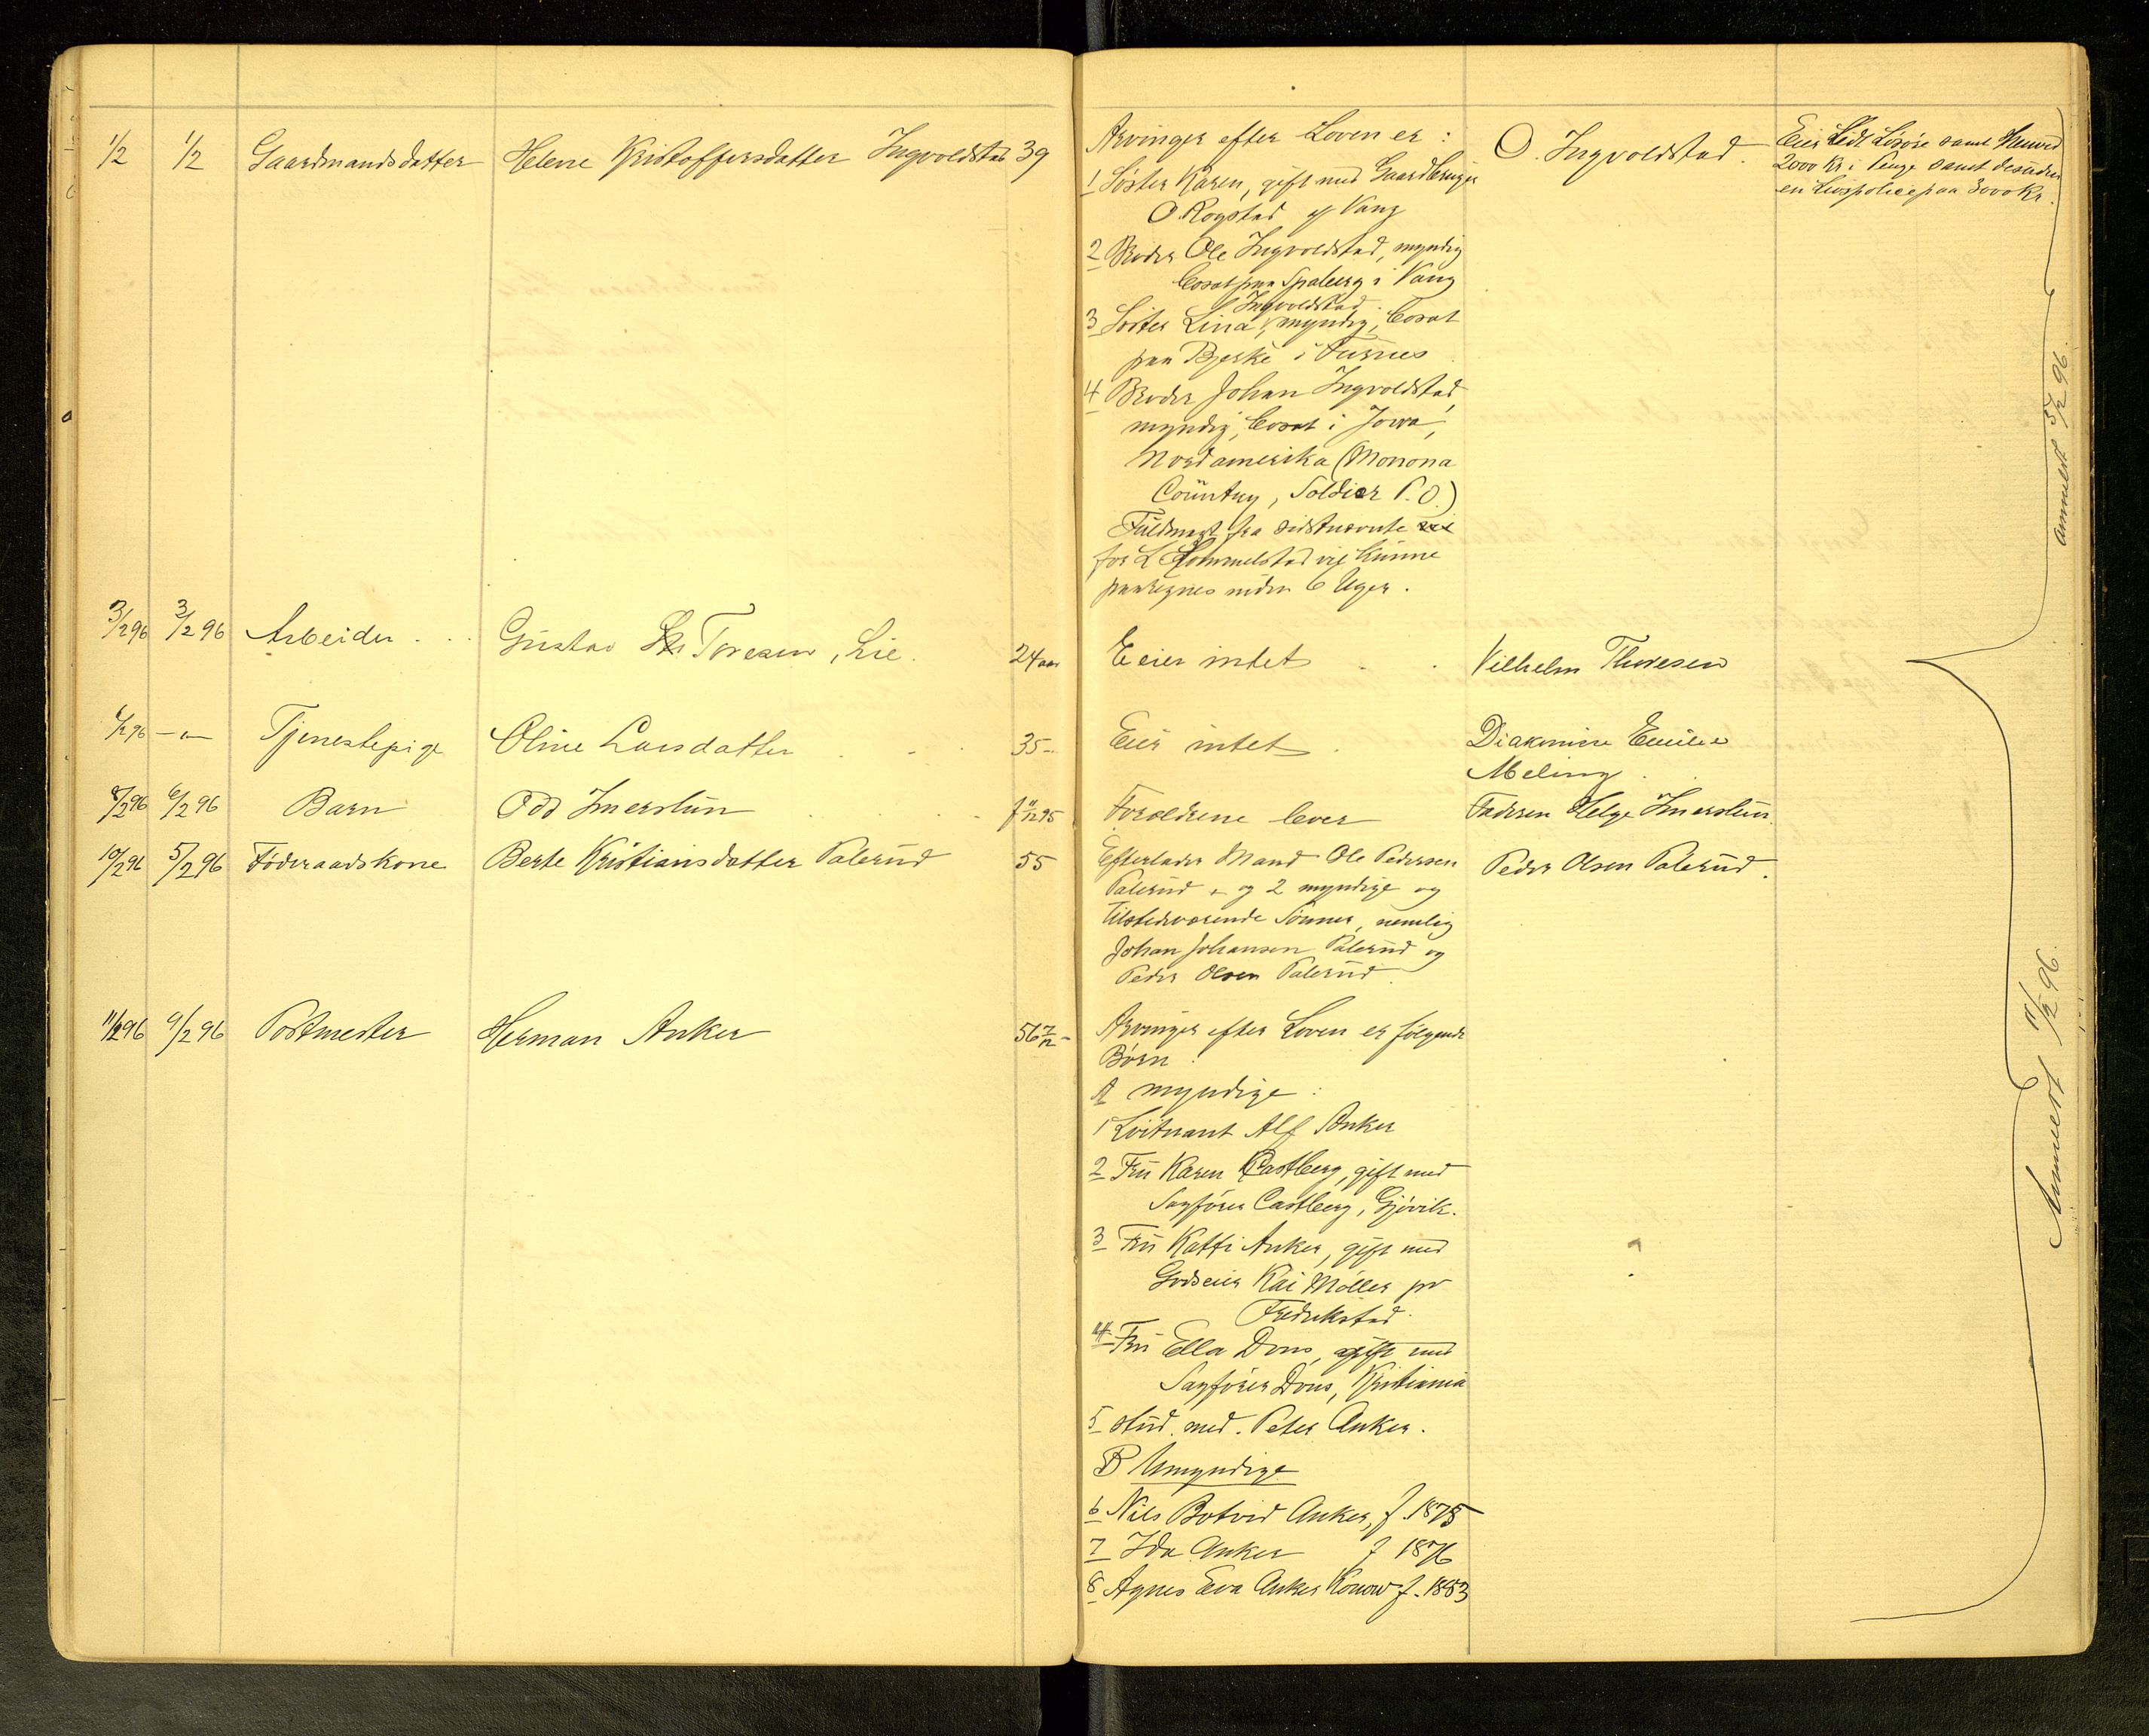 1/2 1/2 Gaardmandsdatter Helene Kristoffersdatter Ingvoldstad 39
Arvinger efter Loven er:
1 Søster Karen, gift med Gaardbruger
O. Rogstad af Vang
2 Broder Ole Ingvoldstad, myndig
bosat paa Spaberg i Vang
3 Søster Lina Ingvoldstad, myndig, bosat
paa Bjerke i Furnes
4 Broder Johan Ingvoldstad,
myndig, bosat i Jowa,
Nordamerika (Monona
Countny, Soldier P.O.)
Fuldmagt fra sidstnævnte
for L Hommelstad vil kunne
paaregnes inden 6 Uger.
O. Ingvoldstad.
Eier Lidt Løsøre samt
2000 Kr. i Penge samt desuden
en Livspolice paa 3000 Kr.
anmeldt 3/2 96.
3/2 96 3/2 96 Arbeider Gustav Toresen, Lie. 24 aar
Eeier intet Vilhelm Thoresen
6/2 96 — " — Tjenestepige Oline Larsdatter 35 -
Eier intet. Diakonisse Emilie
Meling.
8/2 96 6/2 96 Barn Odd Imerslun f 11/12 95
Forældrene lever Faderen Helge Imerslun.
10/2 96 5/2 96 Føderaadskone Berte Kristiansdatter Palerud 55
Efterlader Mand Ole Pedersen
Palerud og 2 myndige og
tilstedeværende Sønner, nemlig
Johan Johansen Palerud og
Peder Olsen Palerud.
Peder Olsen Palerud.
11/2 96 9/2 96 Postmester Herman Anker 56 7/12 -
Arvinger efter Loven er følgende
Børn:
A myndige:
1 Løitnant Alf Anker
2 Fru Karen Castberg, gift med
Sagfører Castberg, Gjøvik.
3 Fru Katti Anker, gift med
Godseier Kai Møller pr
Fredrikstad.
4 Fru Ella Dons, gift med
Sagfører Dons, Kristiania
5 stud. med. Peter Anker.
B Umyndige
6 Nils Botvid Anker, f. 1878
7 Ida Anker f 1876
8 Agnes Eva Anker Konow f. 1883
Anmeldt 11/2 96.